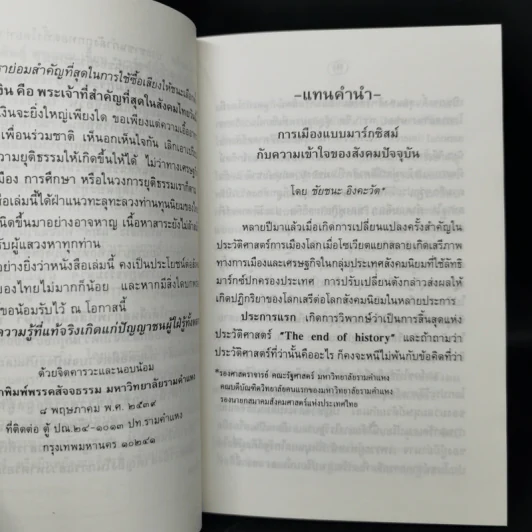 าย่อมสำคัญที่สุดในการใช้ซื้อเสียงให้ชนะเมือง
งิน คือ พระเจ้าที่สำคัญที่สุดในสังคมไทย
เงินจะยิ่งใหญ่เพียงใด ขอเพียงแต่ความเอื้อ
เพื่อนร่วมชาติ เห็นอกเห็นใจกัน เลิกเอา
วามยุติธรรมให้เกิดขึ้นให้ได้ ไม่ว่าทางเศรษฐ
มือง การศึกษา หรือในวงการยุติธรรมเราก็ตาม
สือเล่มนี้ได้ฝ่าแนวทะลุทะลวงท่านทุนนิยมของไทย
นิดขึ้นมาอย่างอาจหาญ เนื้อหาสาระยังไม่ล้า
รับผู้แสวงหาทุกท่าน
อย่างยิ่งว่าหนังสือเล่มนี้ คงเป็นประโยชน์ต่อ
ของไทยไม่มากก็น้อย และหากมีสิ่งใดบก
ขอน้อมรับไว้ ณ โอกาสนี้
ความรู้ที่แท้จริงเกิดแก่ปัญญาชนผู้ใฝ่รู้ทั้ง
ด้วยจิตคารวะและนอบน้อม
าพิมพ์พรรคสัจจธรรม มหาวิทยาลัยรามคำแหง
๘ พฤษภาคม พ.ศ. ๒๕๓๙
ที่ติดต่อ ตู้ ปณ.๒๔-๑๐๑๓ ปท.รามคำแหง
กรุงเทพมหานคร ๑๐๒๔๑
-แทนคำนำ-
การเมืองแบบมาร์กซิสม์
กับความเข้าใจของสังคมปัจจุบัน
โดย ชัยชนะ อิงคะวัต*
หลายปีมาแล้วเมื่อเกิดการเปลี่ยนแปลงครั้งสำคัญใน
ประวัติศาสตร์การเมืองโลกเมื่อโซเวียตแยกสลายเกิดเสรีภาพ
ทางการเมืองและเศรษฐกิจในกลุ่มประเทศสังคมนิยมที่ใช้ลัทธิ
มาร์กซ์ปกครองประเทศ การปรับเปลี่ยนดังกล่าวส่งผลให้
เกิดปฏิกริยาของโลกเสรีต่อโลกสังคมนิยมในหลายประการ
ประการแรก เกิดการวิพากษ์ว่าเป็นการสิ้นสุดแห่ง
ประวัติศาสตร์ "The end of history" และถ้าถามว่า
ประวัติศาสตร์ที่ว่านั้นคืออะไร ก็คงจะหนีไม่พ้นกับข้อคิดที่ว่า
*รองศาสตราจารย์ คณะรัฐศาสตร์ มหาวิทยาลัยรามคำแหง
คณบดีบัณฑิตวิทยาลัยคนแรกของมหาวิทยาลัยรามคำแหง
รองนายกสมาคมสังคมศาสตร์แห่งประเทศไทย